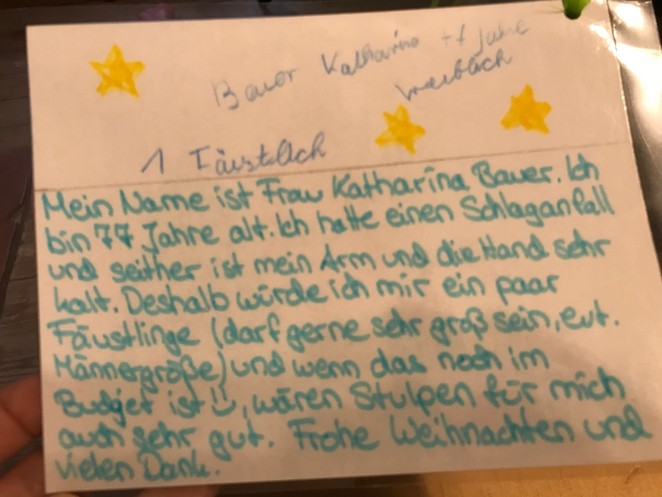 Bauer Katharina 77 Jahre
1 Fäustlich
Mein Name ist Frau Katharina Bauer. Ich
bin 77 Jahre alt. Ich hatte einen Schlaganfall
und seither ist mein Arm und die Hand sehr
kalt. Deshalb würde ich mir ein paar
Fäustlinge (darf gerne sehr groß sein, evt.
Männergröße) und wenn das noch im
Budget ist :), wären Stulpen für mich
auch sehr gut. Frohe Weihnachten und
vielen Dank.